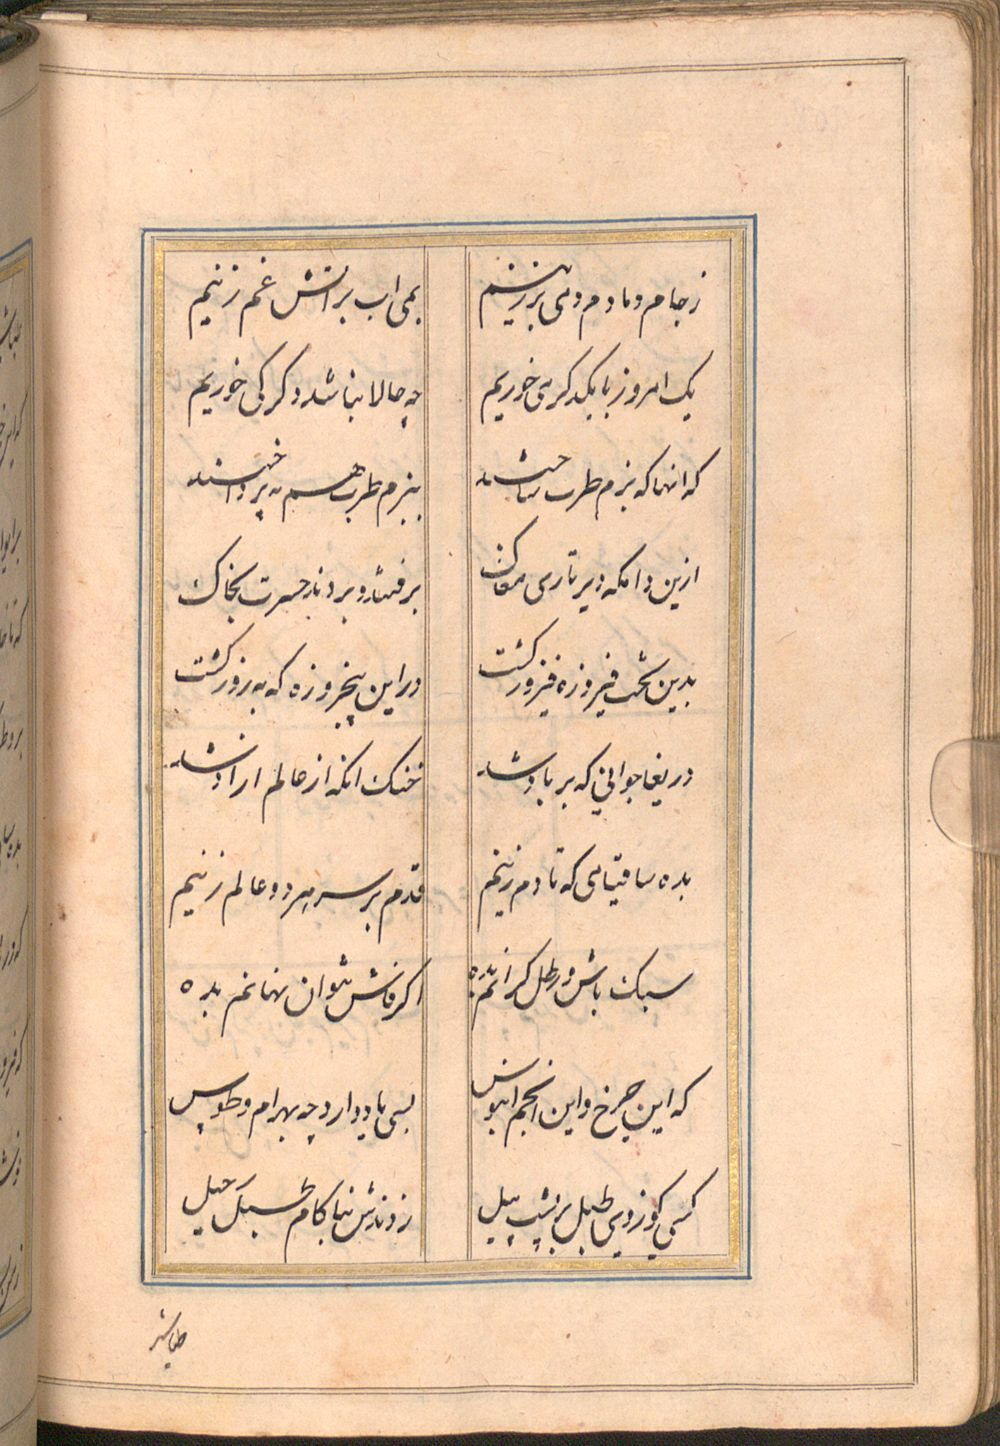 ز جام دمادم دمی بر زنیم بمی اب بر اتش غم زنیم
یک امروز با یکدکر می خوریم چه حالا نباشد دکر کی خوریم
که انها که بزم طرب ساختند ببزم طرب هم نپرداختند
ازین دامکه دیر تاری مغاک برفتند و بردند حسرت بخاک
بدین تخت فیروزه فیروز کشت در این پنجروزه که به روز کشت
دریغا جوانی که بر باد شد خنک انکه از عالم ازاد شد
بده ساقیا می که تا دم زنیم قدم بر سر هر دو عالم زنیم
سبک باش و رطل کرانم بده اکر فاش نتوان نهانم بده
که این چرخ و این انجم ابنوس بسی یاد دارد چه بهرام و طوس
کسی کو زدی طبل بر پشت پیل زدندش بناکام طبل رحیل